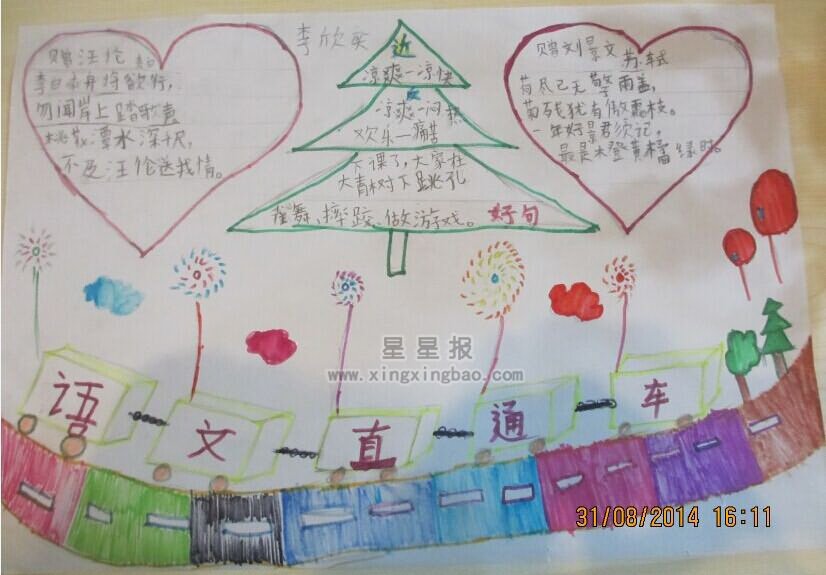 赠汪伦
李白乘舟将欲行,
勿闻岸上踏歌声
桃花潭水深千尺,
不及汪伦送我情。
李欣
近
凉爽—凉快
反
凉爽—闷热
欢乐—痛苦
下课了,大家在
大青树下跳孔
雀舞、摔跤、做游戏。好句
赠刘景文 苏轼
荷尽已无擎雨盖,
菊残犹有傲霜枝。
一年好景君须记,
最是木登黄橘绿时。
星星报
www.xingxingbao.com
语文直通车
31/08/2014 16:11